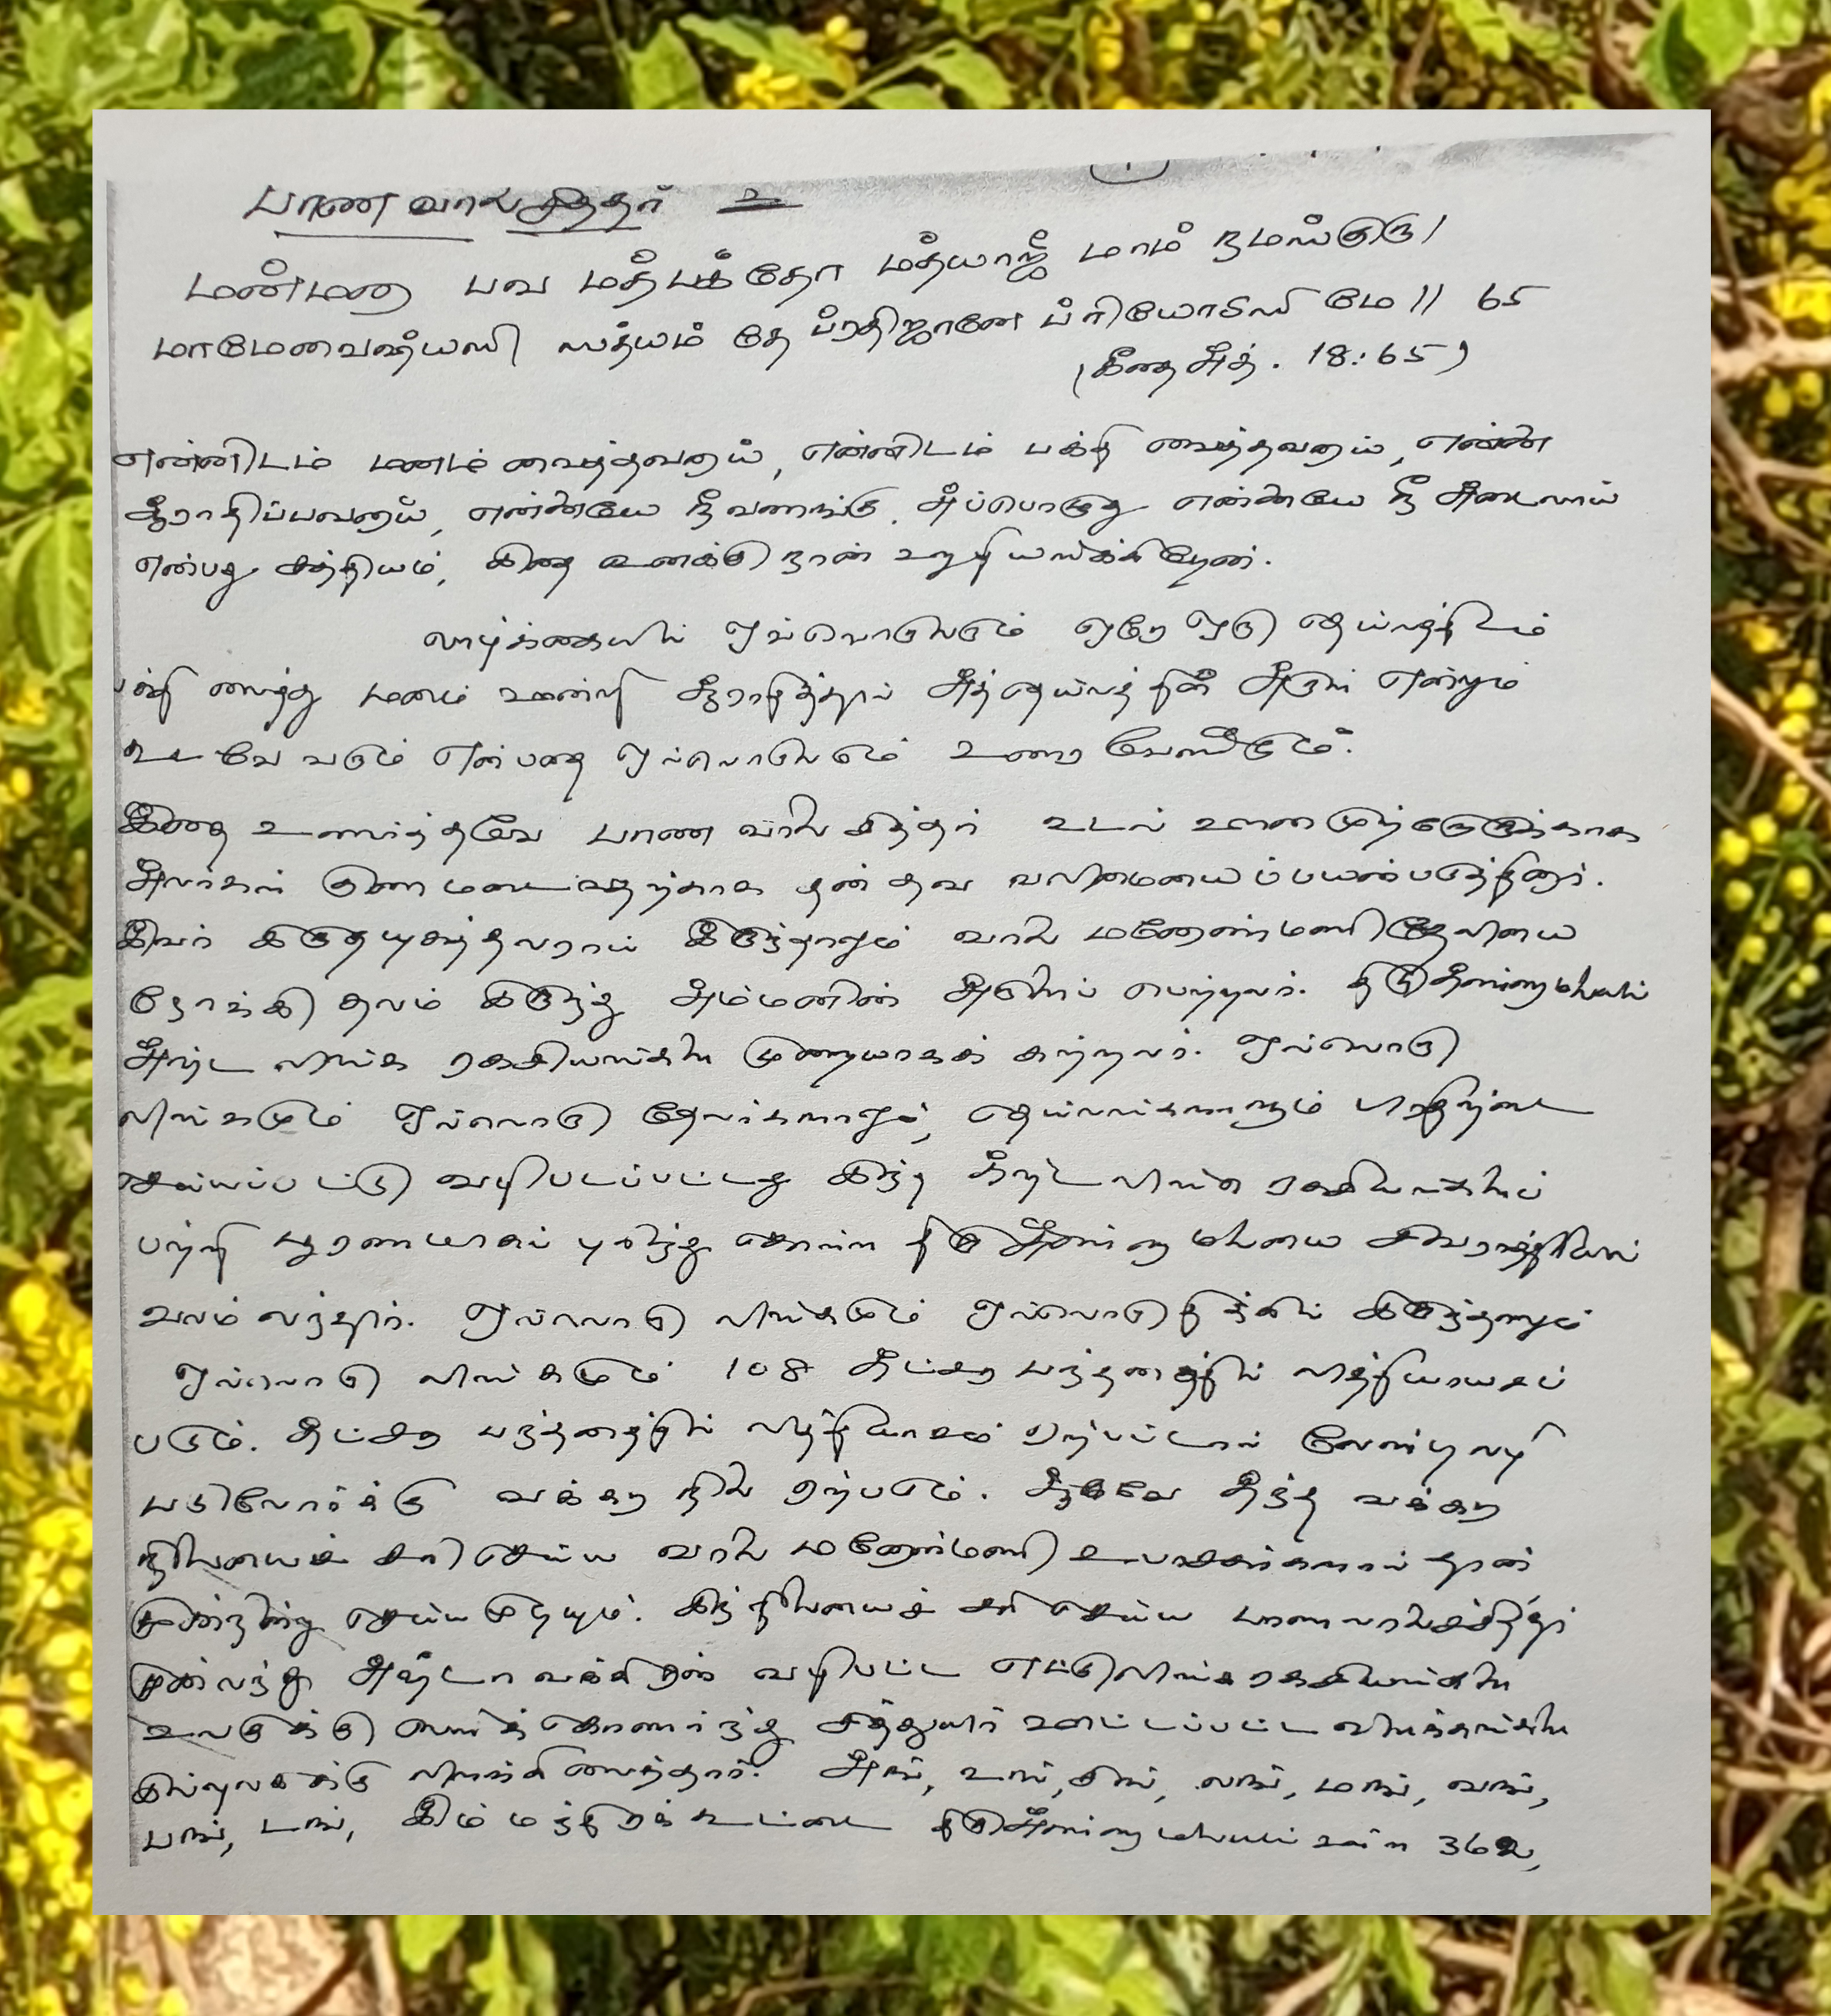 பாண வால சித்தர் உ
மன்மனா பவ மத்பக்தோ மத்யாஜீ மாம் நமஸ்குரு।
மாமேவைஷ்யஸி ஸத்யம் தே ப்ரதிஜானே ப்ரியோSஸி மே॥ 65
(கீதை அத். 18:65)
என்னிடம் மனம் வைத்தவனாய், என்னிடம் பக்தி வைத்தவனாய், என்னை
ஆராதிப்பவனாய், என்னையே நீ வணங்கு. அப்பொழுது என்னையே நீ அடைவாய்
என்பது சத்தியம், இதை உனக்கு நான் உறுதியளிக்கிறேன்.
வாழ்க்கையில் ஒவ்வொருவரும் ஒரே ஒரு தெய்வத்திடம்
பக்தி வைத்து மனம் ஊன்றி ஆராதித்தால் அத்தெய்வத்தின் அருள் என்றும்
உடனே வரும் என்பதை ஒவ்வொருவரும் உணர வேண்டும்.
இதை உணர்ந்தவரே பாண வால சித்தர் உடல் ஊனமுற்றோருக்காக
அவர்கள் குணமடைவதற்காக தன் தவ வலிமையைப் பயன்படுத்தினார்.
இவர் இருதயசுத்தவராய் இருந்தாலும் வாலை மனோன்மணி தேவியை
நோக்கி தவம் இருந்து அம்மனின் அருளைப் பெற்றவர். திருஅண்ணாமலையில்
அஷ்ட லிங்க ரகசியங்களை முறையாகக் கற்றவர். ஒவ்வொரு
லிங்கமும் ஒவ்வொரு தேவர்களாலும், தெய்வங்களாலும் பிரதிஷ்டை
செய்யப்பட்டு வழிபடப்பட்டது இந்த அஷ்ட லிங்க ரகசியங்களைப்
பற்றி பூரணமாகப் புரிந்து கொள்ள திருஅண்ணாமலையை சிவராத்திரியில்
வலம் வந்தார். ஒவ்வொரு லிங்கமும் ஒவ்வொரு திக்கில் இருந்தாலும்
ஒவ்வொரு லிங்கமும் 108 அட்சர பந்தனத்தில் வித்தியாசப்
படும். அட்சர பந்தனத்தில் வித்தியாசம் ஏற்பட்டால் வேண்டி வழி
படுவோர்க்கு வக்கர நிலை ஏற்படும். ஆகவே அந்த வக்கர
நிலையைச் சரி செய்ய வாலை மனோன்மணி உபாசகர்களால் தான்
முன்நின்று செய்ய முடியும். இந்நிலையைச் சரி செய்ய பாணவாலசித்தர்
முன்வந்து அஷ்டாவக்கிரன் வழிபட்ட எட்டு லிங்க ரகசியங்களை
உலகுக்கு வெளிக் கொணர்ந்து சித்துயிர் ஊட்டப்பட்ட லிங்கங்களை
இவ்வுலகுக்கு விளக்கி வைத்தார். அங், உங், சிங், வங், மங், வங்,
யங், டங், இம் மந்திரக் கூட்டை திருஅண்ணாமலையில் உள்ள 362,